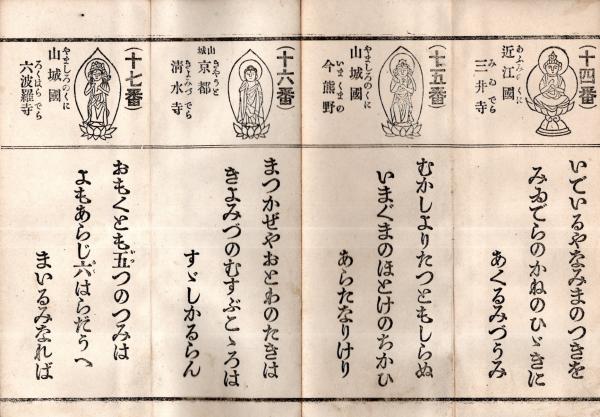 (十四番)
近江國
あふみのくに
三井寺
みゐでら
いでいるやなみまのつきを
みゐでらのかねのひゞきに
あくるみづうみ
(十五番)
山城國
やましろのくに
今熊野
いまくまの
むかしよりたつともしらぬ
いまぐまのほとけのちかひ
あらたなりけり
(十六番)
山城
京都
きやうと
清水寺
きよみづでら
まつかぜやおとわのたきは
きよみづのむすぶこゝろは
すゞしかるらん
(十七番)
山城國
やましろのくに
六波羅寺
ろくはらでら
おもくとも五つのつみは
よもあらじ六はらだうへ
まいるみなれば